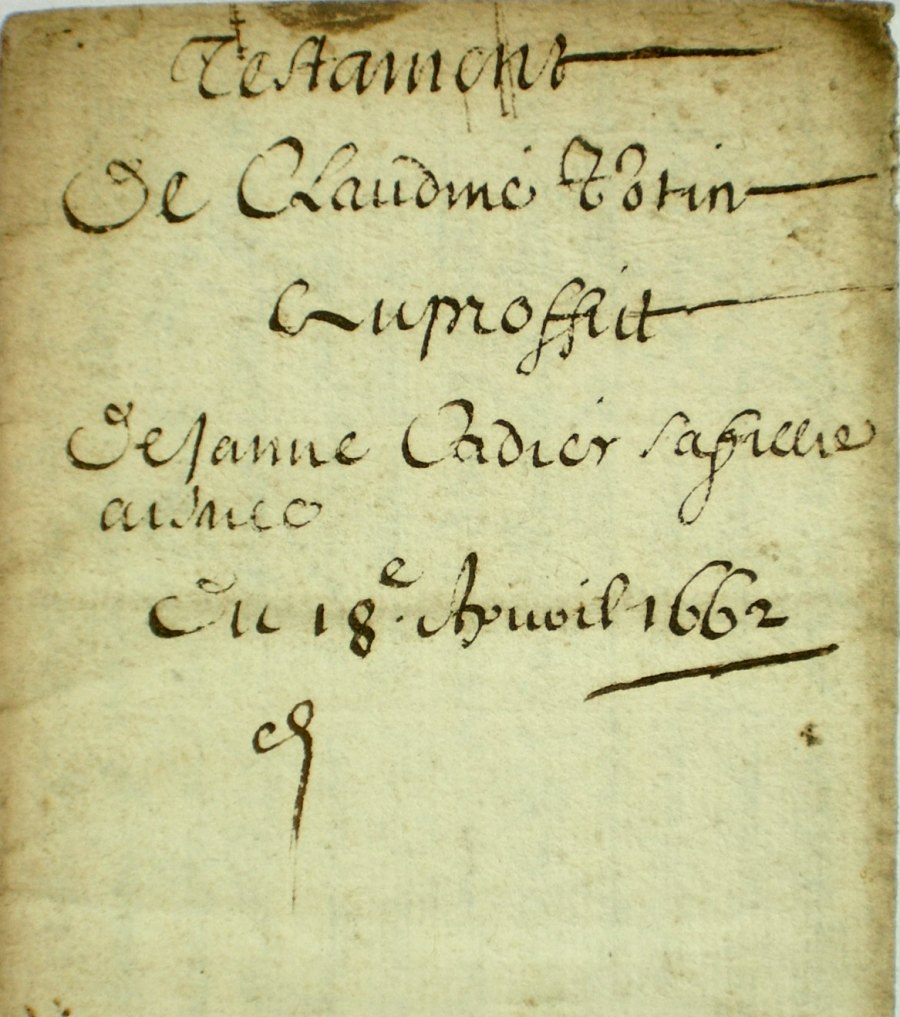 Testament
De Claudine Potin
Auproffict
De Janne Cadier sa fillie
aisnee
Du 18e. Apvril 1662